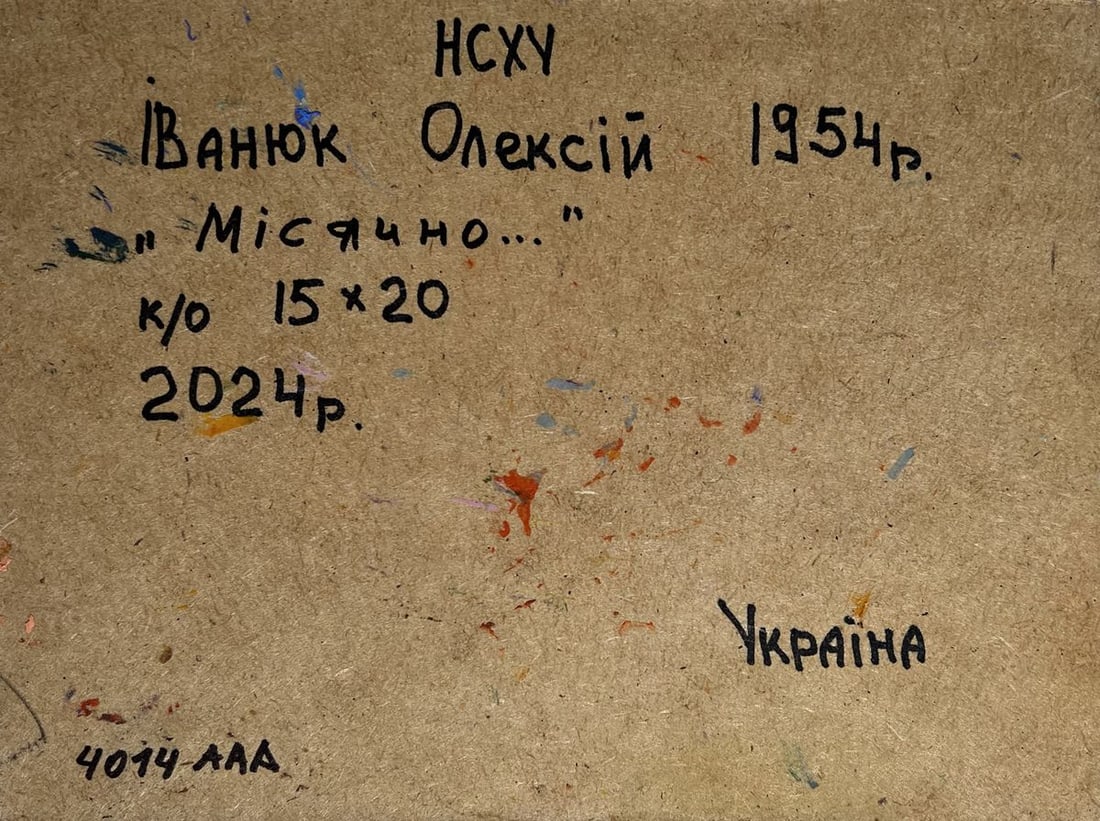 НСХУ
Іванюк Олексій 1954р.
„Місячно..."
к/о 15×20
2024р.
Україна
4014-ААА